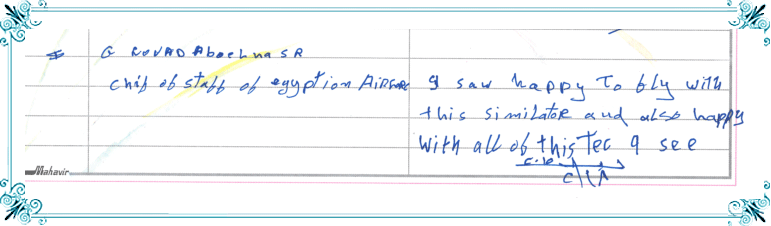 G
chif of staff of egyption AIRFORCE
I saw happy To fly with
this similator and also happy
with all of this Tec I see
Mahavir